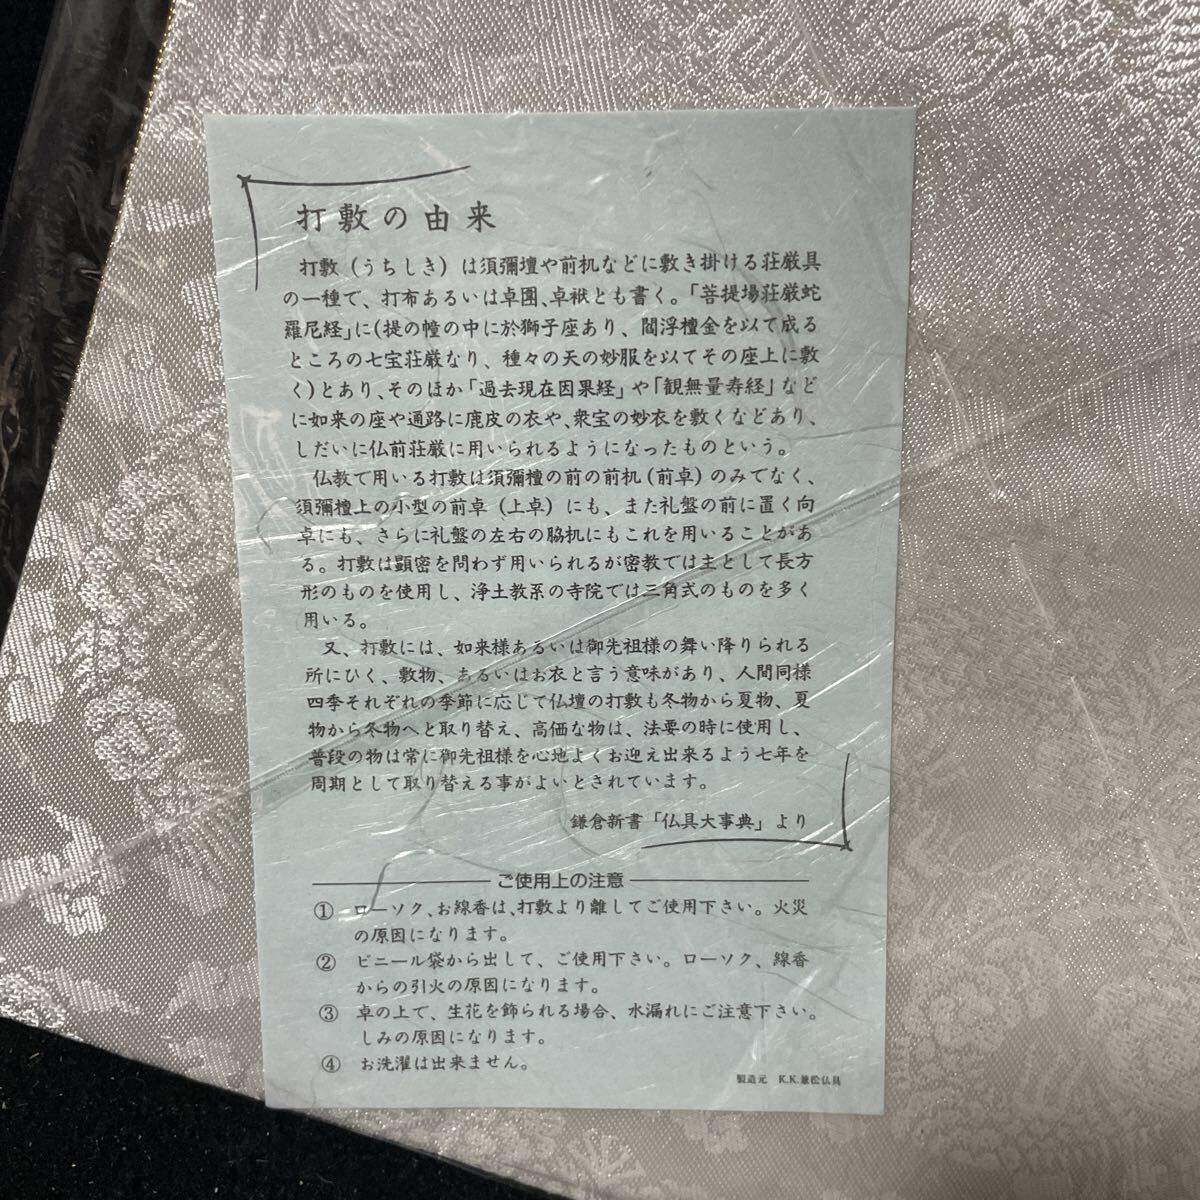 打敷の由来
打敷(うちしき)は須彌壇や前机などに敷き掛ける荘厳具
の一種で、打布あるいは卓圍、卓袱とも書く。「菩提場荘厳蛇
羅尼経」に(提の幢の中に於獅子座あり、閻浮檀金を以て成る
ところの七宝荘厳なり、種々の天の妙服を以てその座上に敷
く)とあり、そのほか「過去現在因果経」や「観無量寿経」など
に如来の座や通路に鹿皮の衣や、衆宝の妙衣を敷くなどあり、
しだいに仏前荘厳に用いられるようになったものという。
仏教で用いる打敷は須彌檀の前の前机(前卓)のみでなく、
須彌檀上の小型の前卓(上卓)にも、また礼盤の前に置く向
卓にも、さらに礼盤の左右の脇机にもこれを用いることがあ
る。打敷は顕密を問わず用いられるが密教では主として長方
形のものを使用し、浄土教系の寺院では三角式のものを多く
用いる。
又、打敷には、如来様あるいは御先祖様の舞い降りられる
所にひく、敷物、あるいはお衣と言う意味があり、人間同様
四季それぞれの季節に応じて仏壇の打敷も冬物から夏物、夏
物から冬物へと取り替え、高価な物は、法要の時に使用し、
普段の物は常に御先祖様を心地よくお迎え出来るよう七年を
周期として取り替える事がよいとされています。
鎌倉新書「仏具大事典」より
ご使用上の注意
① ローソク、お線香は、打敷より離してご使用下さい。火災
の原因になります。
② ビニール袋から出して、ご使用下さい。ローソク、線香
からの引火の原因になります。
③ 卓の上で、生花を飾られる場合、水漏れにご注意下さい。
しみの原因になります。
④ お洗濯は出来ません。
製造元 K.K.兼松仏具